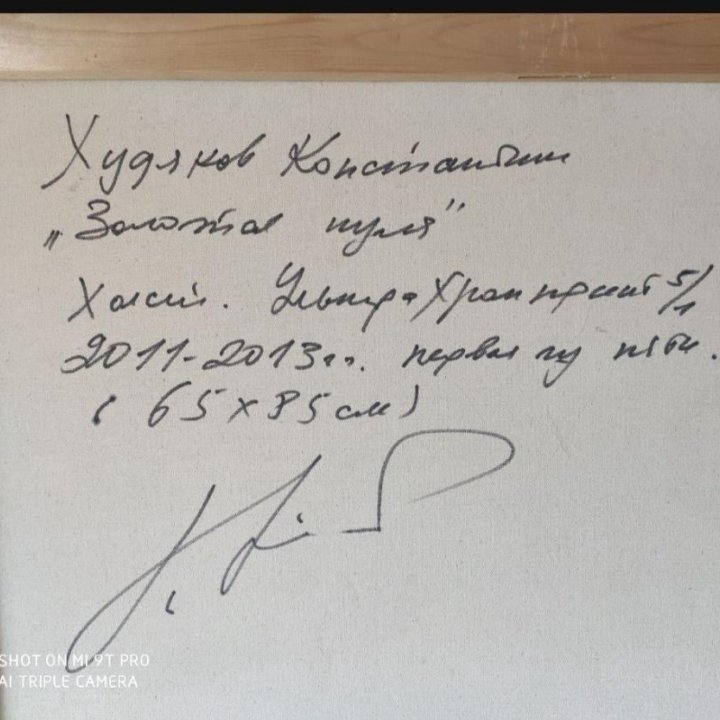 Худяков Константин
„Золотая пуля"
Холст. Ультра Хром принт 5/1
2011-2013гг. первая из пяти.
( 65 х 85 см)
SHOT ON MI 9T PRO
AI TRIPLE CAMERA